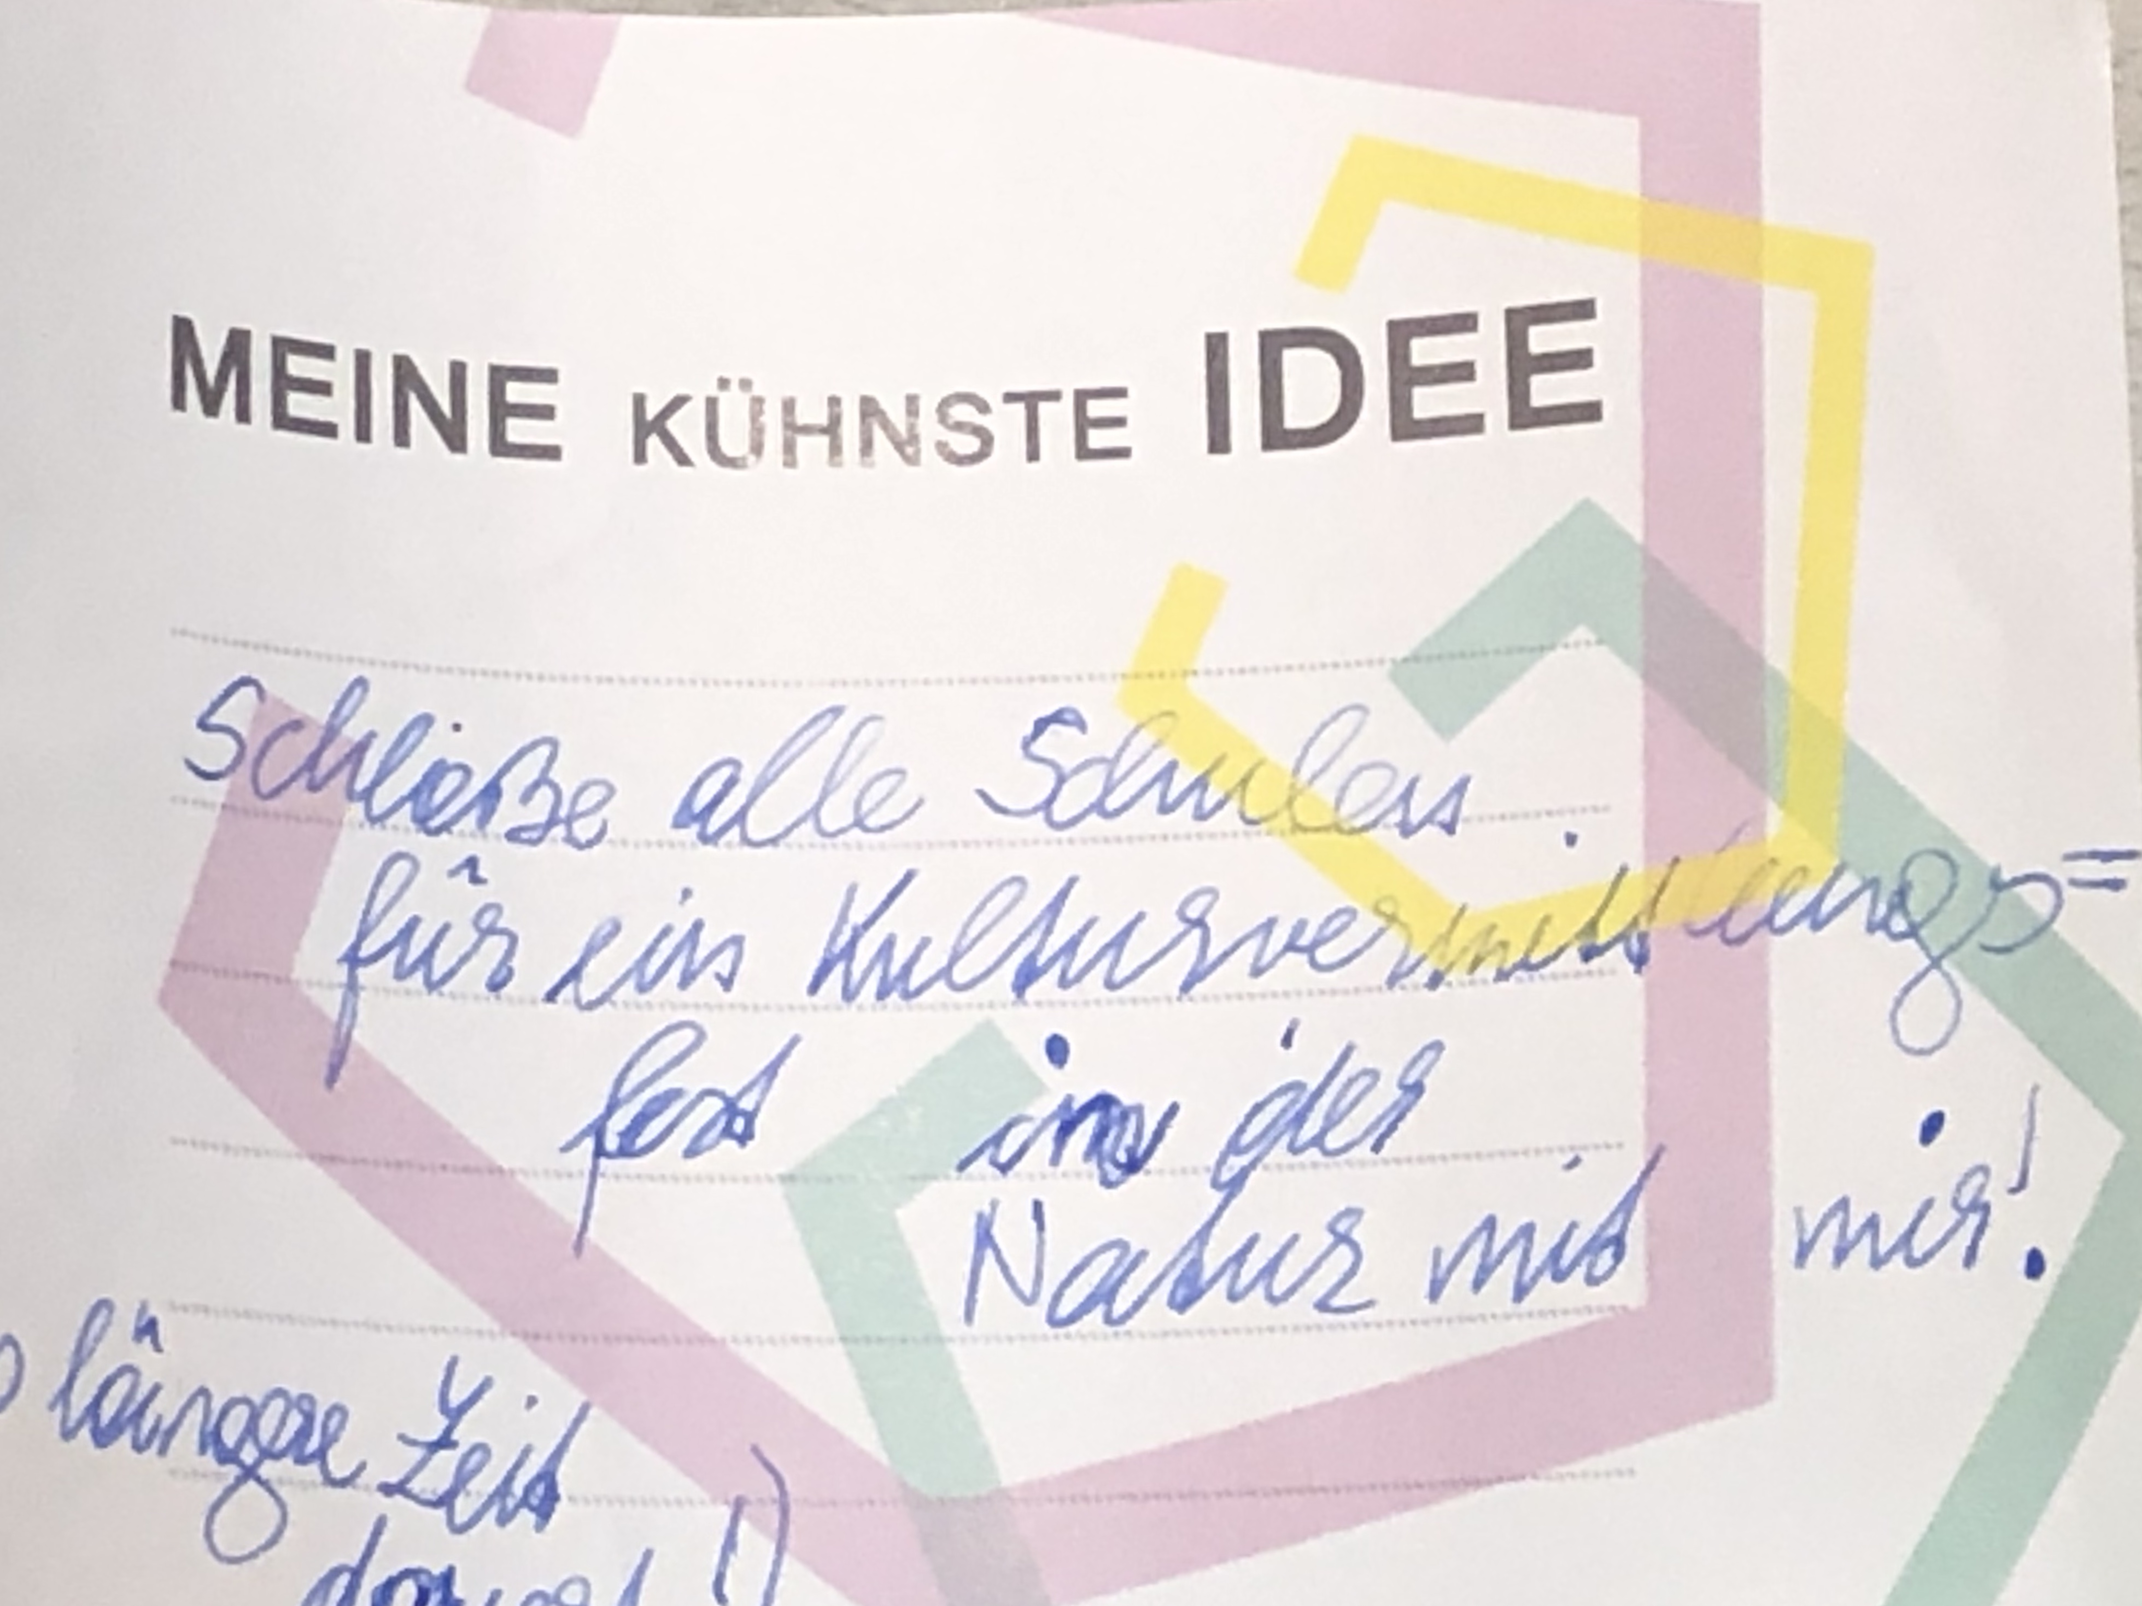 MEINE KÜHNSTE IDEE
Schließe alle Schulen
für ein Kulturvermittlungs=
fest in der
Natur mit mir!
längere Zeit